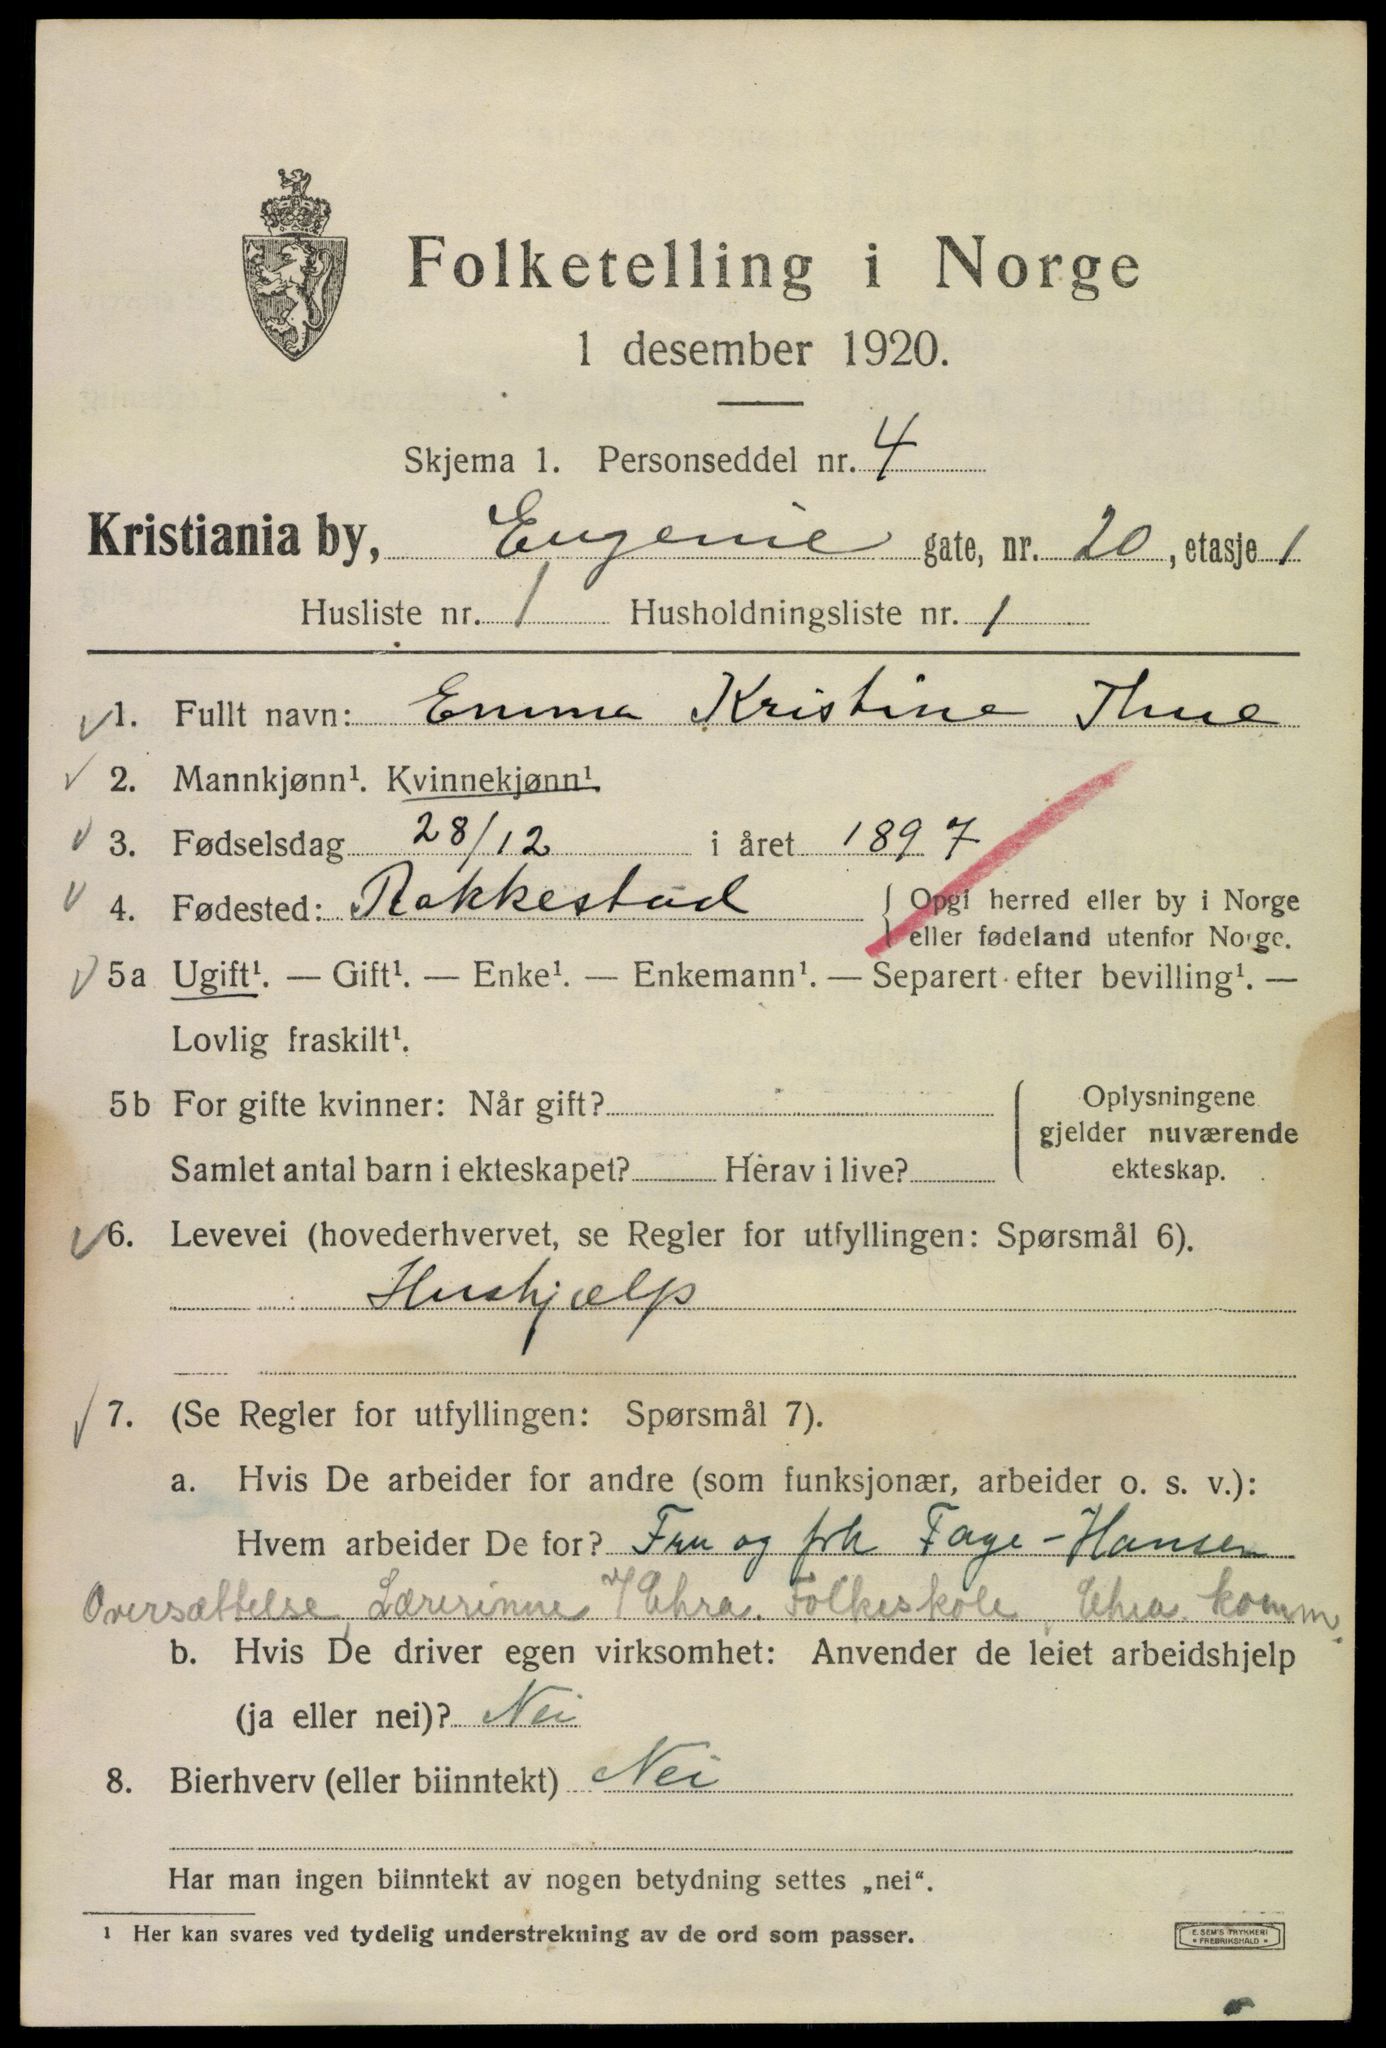 Folketelling i Norge
1 desember 1920.
Skjema 1. Personseddel nr. 4
Kristiania by, Eugenie gate, nr. 20, etasje 1
Husliste nr. 1 Husholdningsliste nr. 1
1. Fullt navn: Emma Kristine Thue
2. Mannkjønn¹. Kvinnekjønn¹
3. Fødselsdag 28/12 i året 1897
4. Fødested: Rakkestad { Opgi herred eller by i Norge
eller fødeland utenfor Norge.
5a Ugift¹. — Gift¹. — Enke¹. — Enkemann¹. — Separert efter bevilling¹. —
Lovlig fraskilt¹.
5b For gifte kvinner: Når gift? Oplysningene
gjelder nuværende
Samlet antal barn i ekteskapet? Herav i live? ekteskap.
6. Levevei (hovederhvervet, se Regler for utfyllingen: Spørsmål 6).
Hushjælp
7. (Se Regler for utfyllingen: Spørsmål 7).
a. Hvis De arbeider for andre (som funksjonær, arbeider o. s. v.):
Hvem arbeider De for? Fru og frk Faye-Hansen
Oversættelse, Lærerinne v/Chra. Folkeskole, Chra. komm.
b. Hvis De driver egen virksomhet: Anvender de leiet arbeidshjelp
(ja eller nei)? Nei
8. Bierhverv (eller biinntekt) Nei
Har man ingen biinntekt av nogen betydning settes „nei“.
1 Her kan svares ved tydelig understrekning av de ord som passer.
E. SEM'S TRYKKERI
FREDRIKSHALD